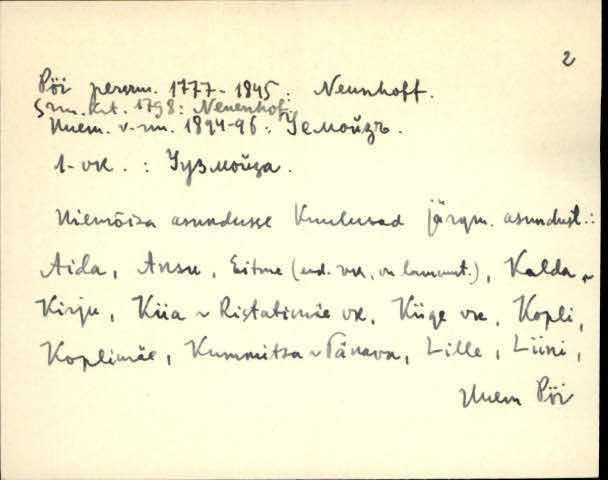 2
Pöi perem. 1777-1845: Neunhoff.
Srm. krt. 1798: Neuenhof
Uuem. v-nm. 1894-96: Уемойзъ.
1-vk. : Уузмойза.
Uiemõisa asundusse kuuluvad järgm. asundust.:
Aida, Ansu, Eitme (end. vk, on lammut.), Kalda,
Kirju, Kiia ~ Ristatimäe vk, Küge vk, Kopli,
Koplimäe, Kummitsa ~ Tänava, Lille, Liini,
Uuem Pöi